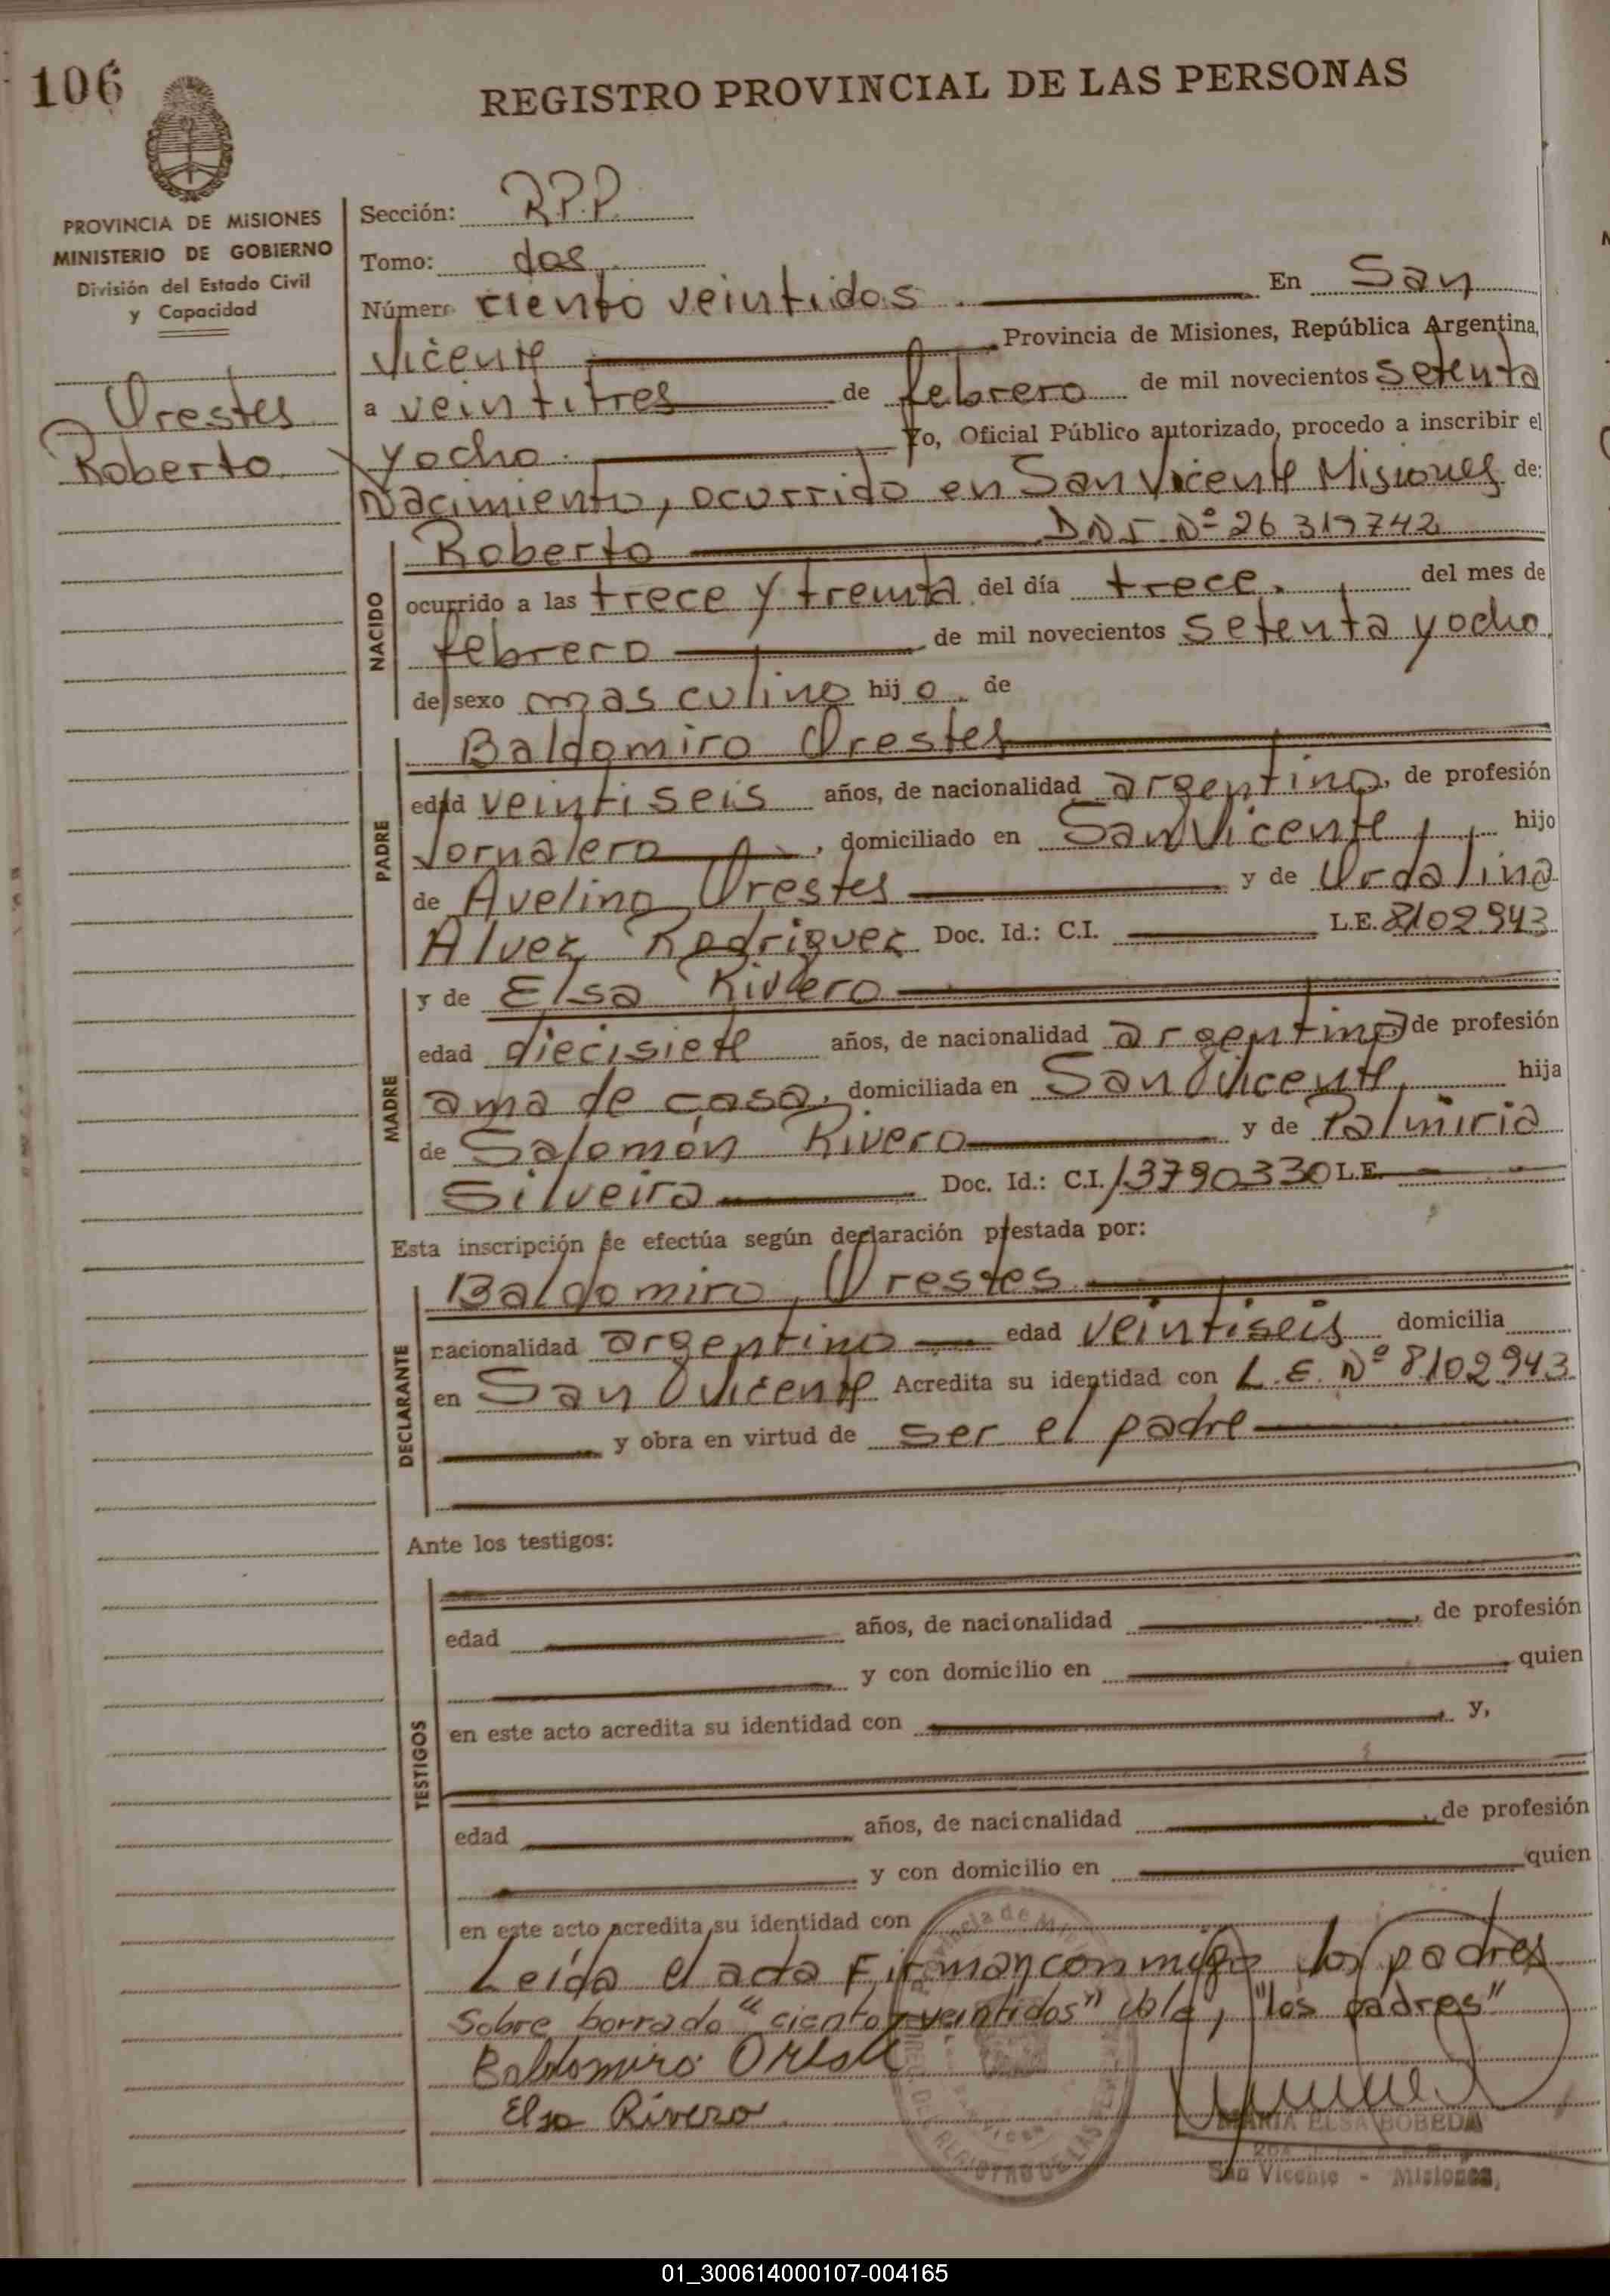 106
REGISTRO PROVINCIAL DE LAS PERSONAS
PROVINCIA DE MISIONES
MINISTERIO DE GOBIERNO
División del Estado Civil
y Capacidad
Orestes
Roberto
Sección: R.P.P.
Tomo: dos
Número ciento veintidos En San
Vicente Provincia de Misiones, República Argentina,
a veintitres de febrero de mil novecientos setenta
y ocho. Yo, Oficial Público autorizado, procedo a inscribir el
Nacimiento, ocurrido en San Vicente Misiones de:
Roberto DNI Nº 26 319742
NACIDO
ocurrido a las trece y treinta del día trece. del mes de
febrero de mil novecientos setenta y ocho,
de sexo masculino hijo. de
Baldomiro Orestes
PADRE
edad veintiseis años, de nacionalidad argentino, de profesión
Jornalero, domiciliado en San Vicente, hijo
de Avelino Orestes y de Ordalina
Alvez Rodriguez Doc. Id.: C.I. L.E. 8102943
y de Elsa Rivero
MADRE
edad diecisiete años, de nacionalidad argentina de profesión
ama de casa, domiciliada en San Vicente, hija
de Salomón Rivero y de Palmiria
Silveira Doc. Id.: C.I. 13790330 L.E.
Esta inscripción se efectúa según declaración prestada por:
Baldomiro Orestes
DECLARANTE
nacionalidad argentino edad veintiseis domicilia
en San Vicente Acredita su identidad con L.E. Nº 8102943
y obra en virtud de ser el padre
Ante los testigos:
TESTIGOS
edad años, de nacionalidad, de profesión
y con domicilio en quien
en este acto acredita su identidad con y,
edad años, de nacionalidad, de profesión
y con domicilio en quien
en este acto acredita su identidad con
Leída el acta Firman conmigo los padres
Sobre borrado "ciento veintidos" vale, "los padres"
Baldomiro Oreste
Elsa Rivero
MARIA ELSA BOBEDA
San Vicente - Misiones,
01_300614000107-004165